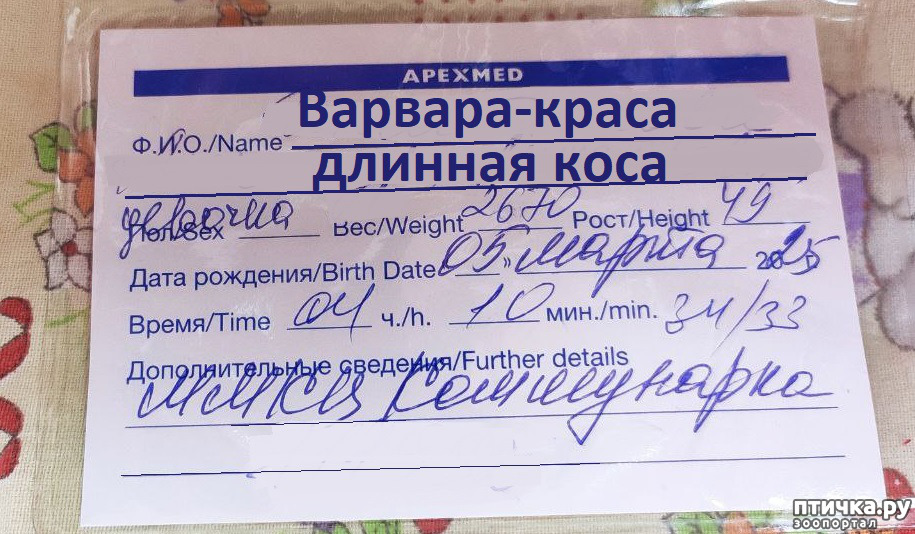 APEXMED
Варвара-краса
Ф.И.О./Name
длинная коса
девочка
Пол/Sex Вес/Weight 2670 Рост/Height 49
Дата рождения/Birth Date 05 » марта 2025
Время/Time 04 ч./h. 10 мин./min. 34/33
Дополнительные сведения/Further details
ММКЦ Коммунарка
птичка.ру
зоопортал